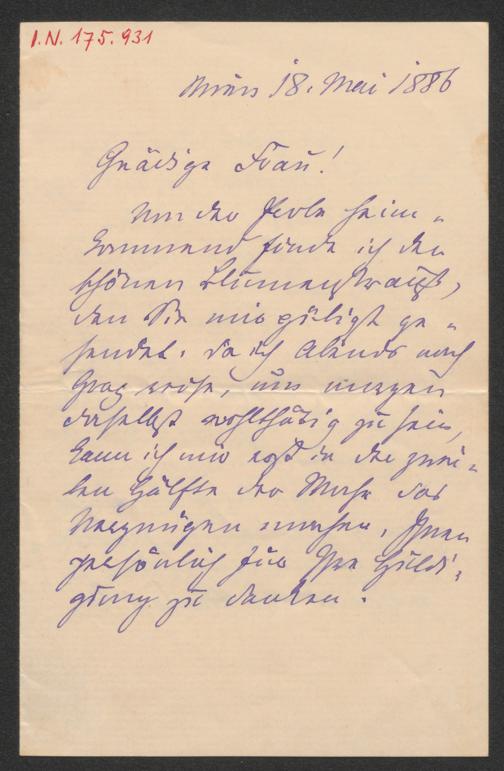 I.N. 175.931
Wien 18. Mai 1886
Gnädige Frau!
Von der heim-
kommend finde ich den
schönen Blumenstrauß,
den Sie mir gütigst ge-
sendet. Da ich Abends nach
Graz reise, um morgen
daselbst wohlthätig zu sein,
kann ich mir erst in der zwei-
ten Hälfte der Woche das
Vergnügen machen, Ihnen
persönlich für Ihre Huldi-
gung zu danken.